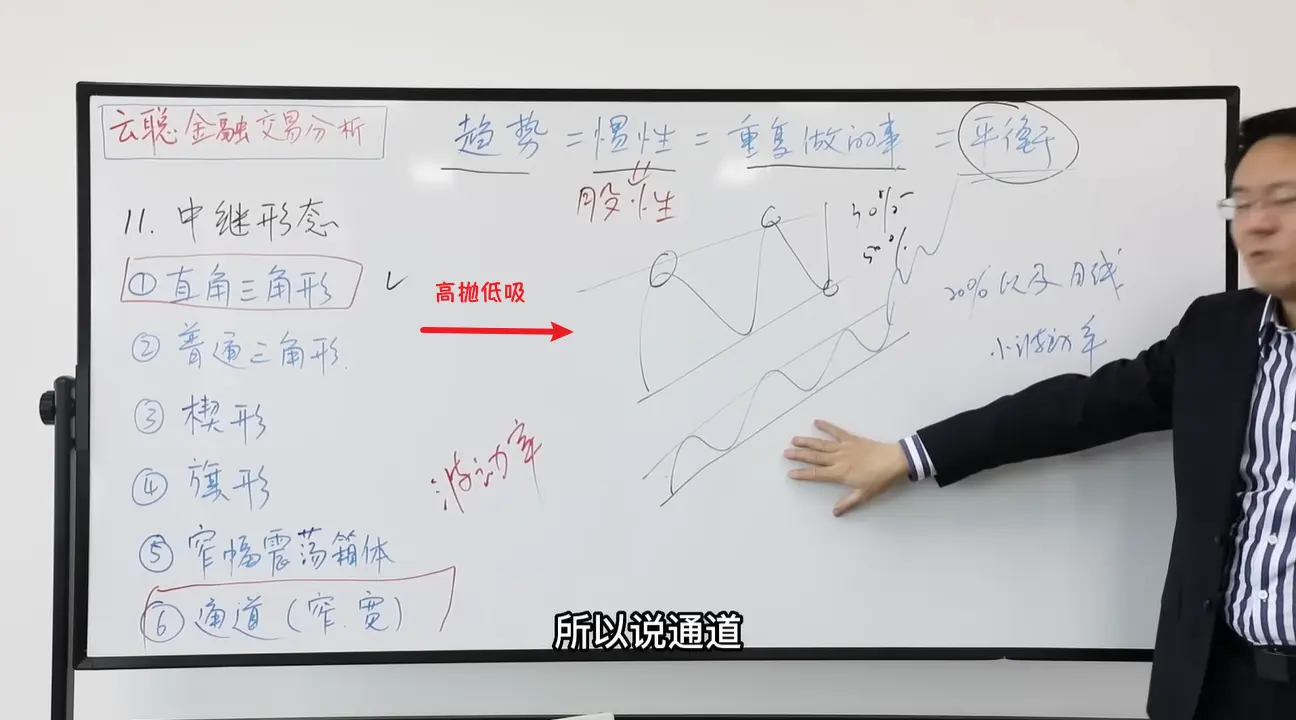 云聪金融交易分析
趋势=惯性=重复做的事=平衡
股性
11. 中继形态
① 直角三角形 ✓
② 普通三角形
③ 楔形
④ 旗形
⑤ 窄幅震荡箱体
⑥ 通道（窄.宽）
高抛低吸
波动率
50%
20%以及日线
小波动率
所以说通道